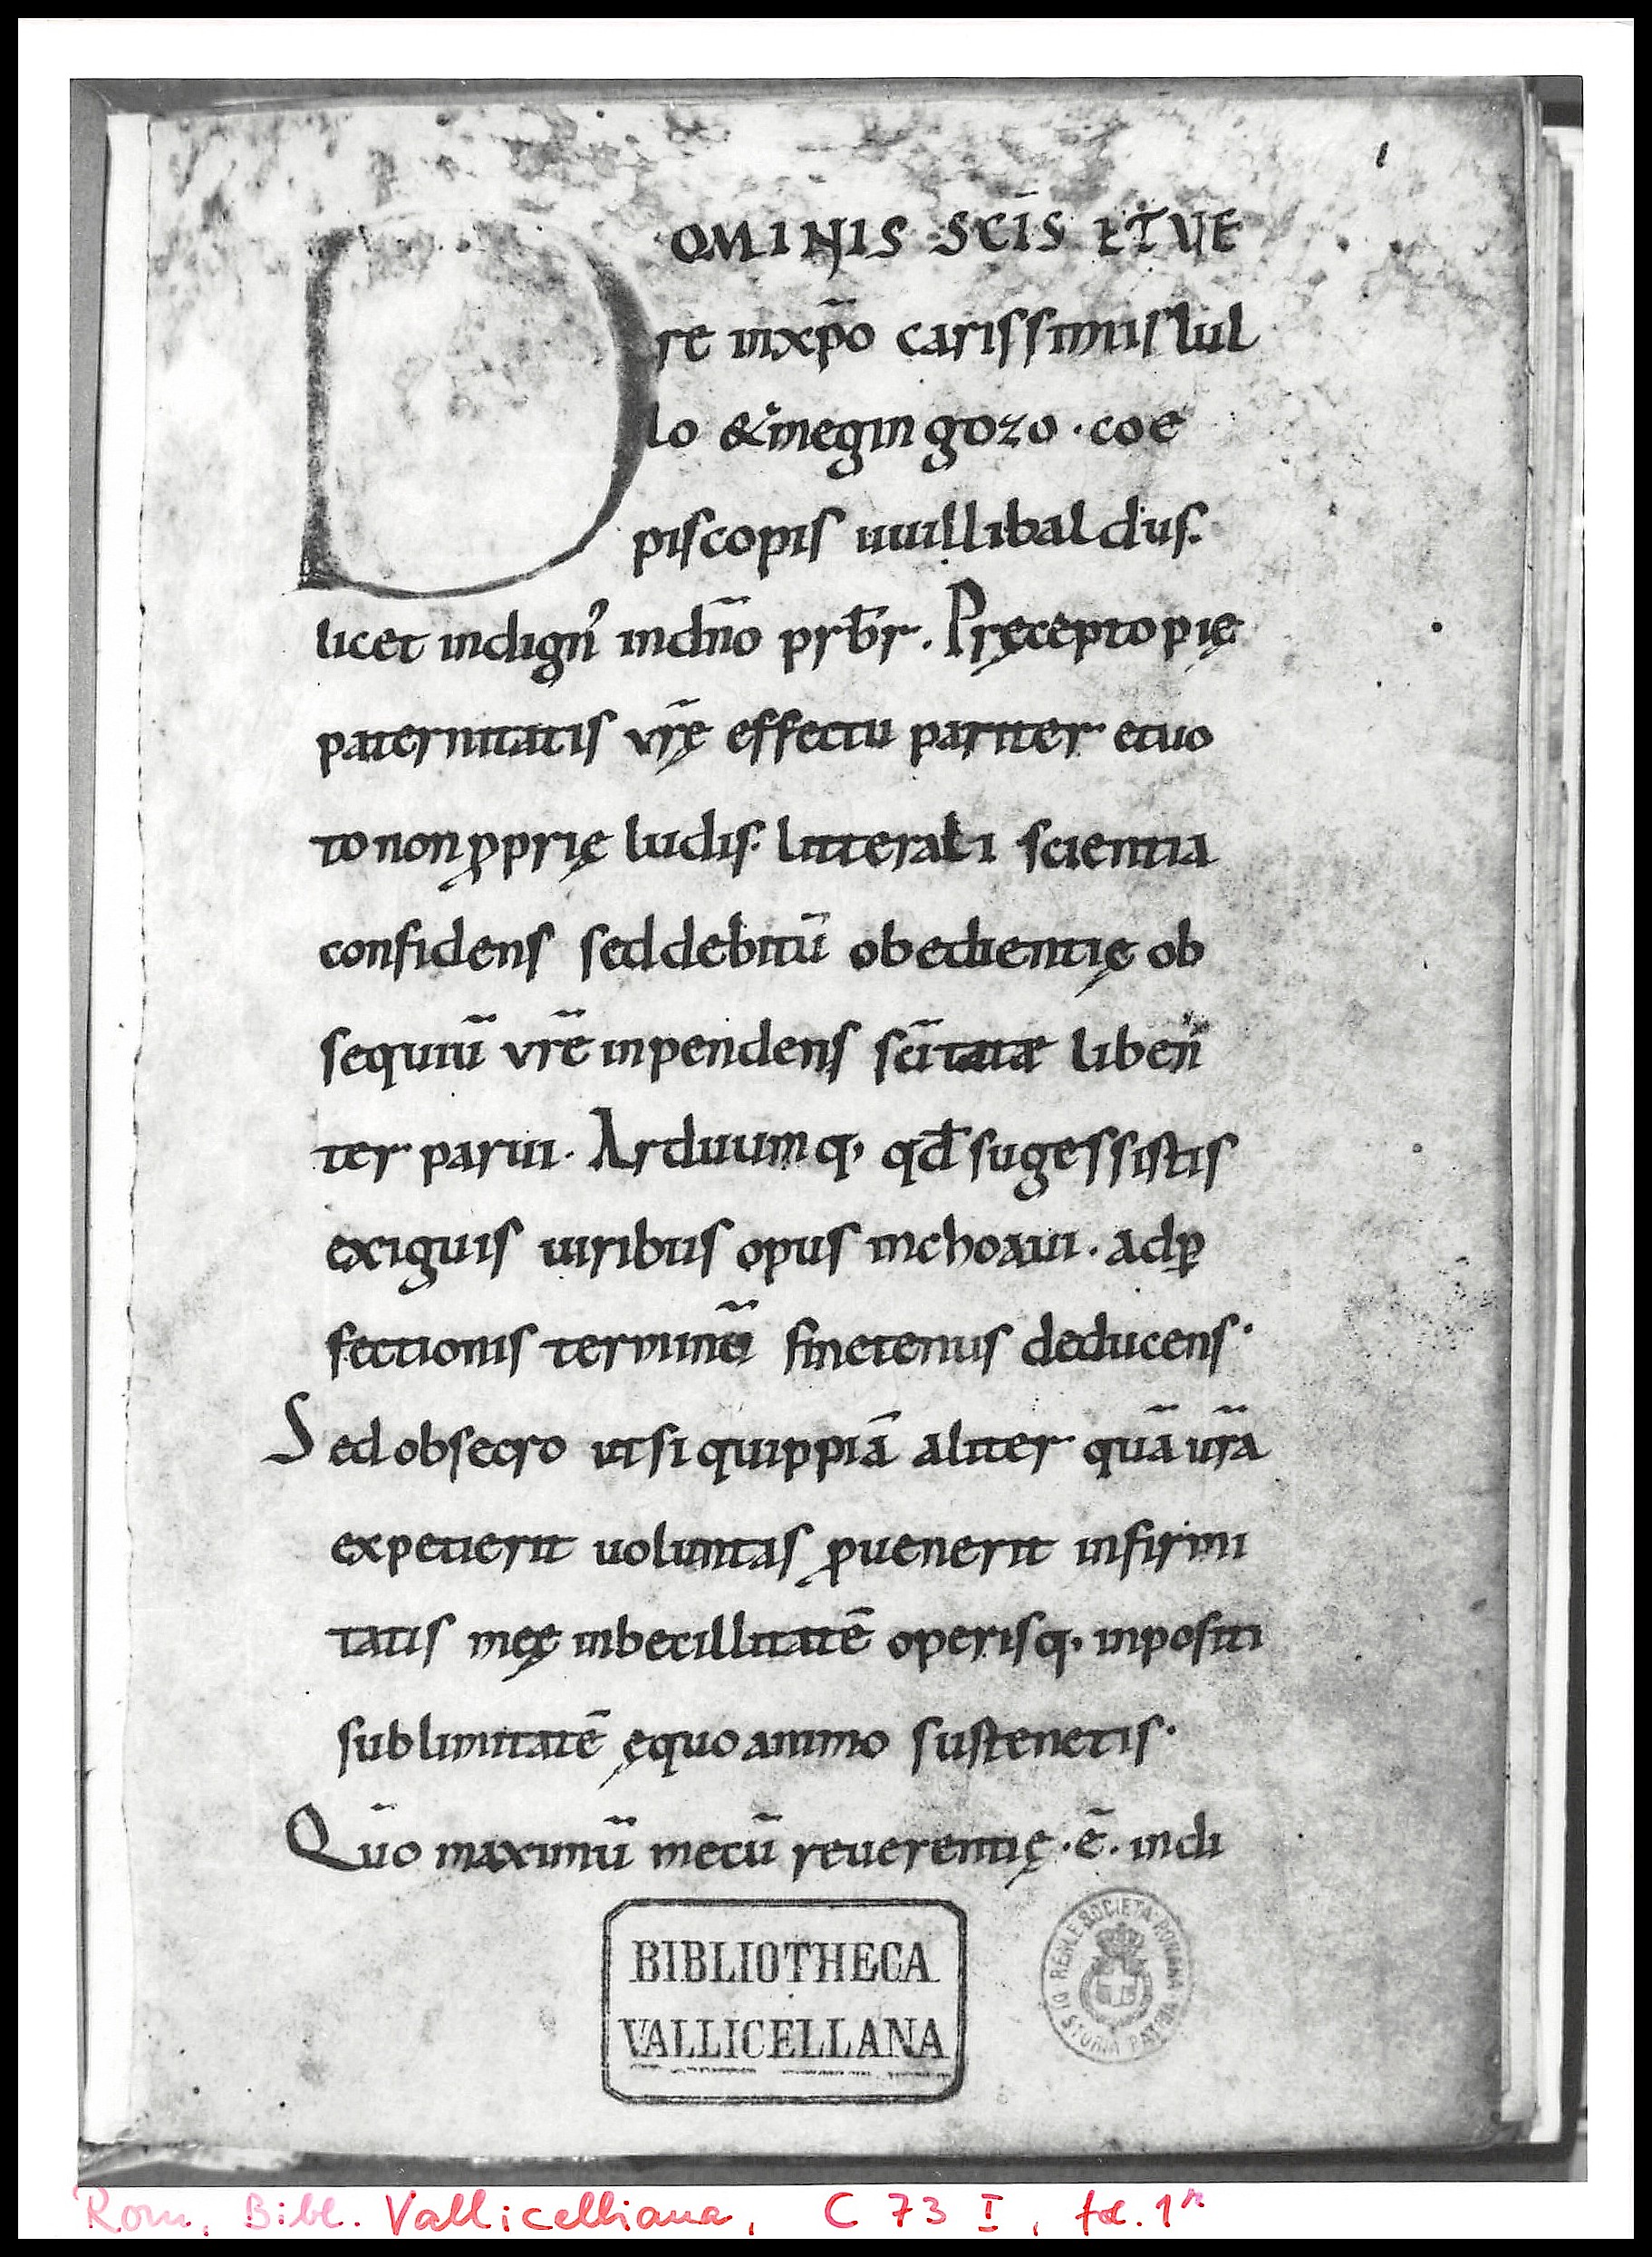 1
DOMINIS SCĪS ET VE
re in xp̄o carissimis lul
lo & megingozo · coe
piscopis uuillibaldus.
licet indignꝰ in dn̄o prb̄r. Pręcepto pię
paternitatis vr̄ę effectu pariter et uo
to non ꝓprię ludis. litterali scientia
confidens sed debitū obedientię ob
sequiū vr̄e inpendens sc̄itatæ liben̄
ter parui. Arduumq, qd̄ sugessistis
exiguis uiribus opus inchoaui. ad ꝑ
fectionis terminū finetenus deducens.
Sed obsecro ut si quippiā aliter quā ur̄a
expetierit uoluntas ꝓuenerit infirmi
tatis meę inbecillitatē operisq, inpositi
sublimitatē ęquo animo sustenetis.
Quō maximū mecū reuerentię · ē. indi
BIBLIOTHECA
VALLICELLANA
REALE SOCIETA ROMANA DI STORIA PATRIA
Rom, Bibl. Vallicelliana, C 73 I, fol. 1r